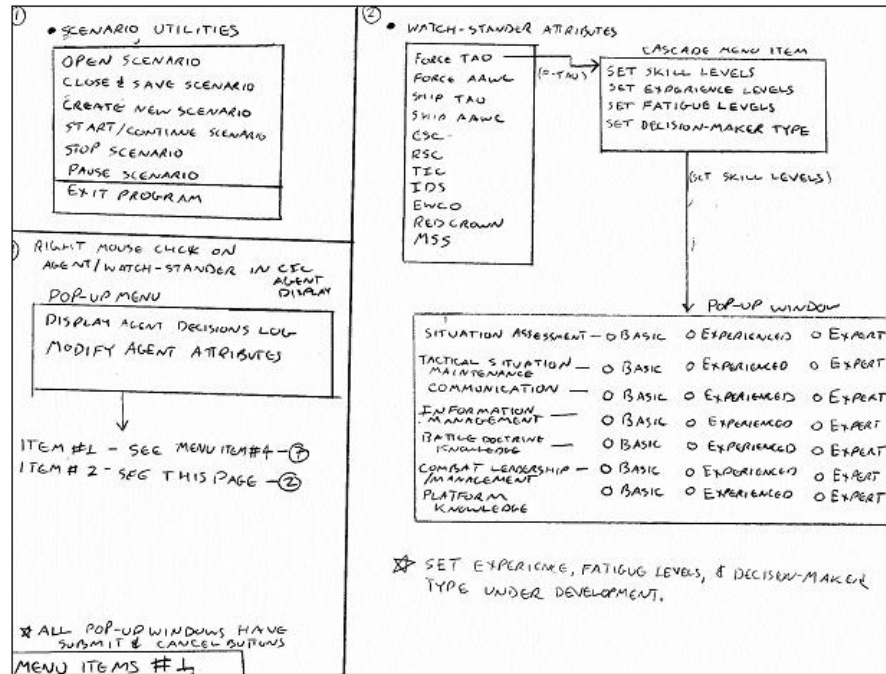 ①
• SCENARIO UTILITIES
OPEN SCENARIO
CLOSE & SAVE SCENARIO
CREATE NEW SCENARIO
START/CONTINUE SCENARIO
STOP SCENARIO
PAUSE SCENARIO
EXIT PROGRAM
RIGHT MOUSE CLICK ON
AGENT/WATCH-STANDER IN CIC
AGENT
DISPLAY
POP-UP MENU
DISPLAY AGENT DECISIONS LOG
MODIFY AGENT ATTRIBUTES
ITEM #1 - SEE MENU ITEM #4 - ⑦
ITEM # 2 - SEE THIS PAGE - ②
☆ ALL POP-UP WINDOWS HAVE
SUBMIT & CANCEL BUTTONS
MENU ITEMS #1
②
• WATCH-STANDER ATTRIBUTES
FORCE TAO
FORCE AAWC
SHIP TAO
SHIP AAWC
CSC
RSC
TIC
IDS
EWCO
RED CROWN
MSS
(F-TAO)
CASCADE MENU ITEM
SET SKILL LEVELS
SET EXPERIENCE LEVELS
SET FATIGUE LEVELS
SET DECISION-MAKER TYPE
(SET SKILL LEVELS)
POP-UP WINDOW
SITUATION ASSESSMENT - O BASIC O EXPERIENCED O EXPERT
TACTICAL SITUATION - O BASIC O EXPERIENCED O EXPERT
MAINTENANCE
COMMUNICATION - O BASIC O EXPERIENCED O EXPERT
INFORMATION - O BASIC O EXPERIENCED O EXPERT
MANAGEMENT
BATTLE DOCTRINE - O BASIC O EXPERIENCED O EXPERT
KNOWLEDGE
COMBAT LEADERSHIP - O BASIC O EXPERIENCED O EXPERT
/MANAGEMENT
PLATFORM O BASIC O EXPERIENCED O EXPERT
KNOWLEDGE
☆ SET EXPERIENCE, FATIGUE LEVELS, & DECISION-MAKER
TYPE UNDER DEVELOPMENT.